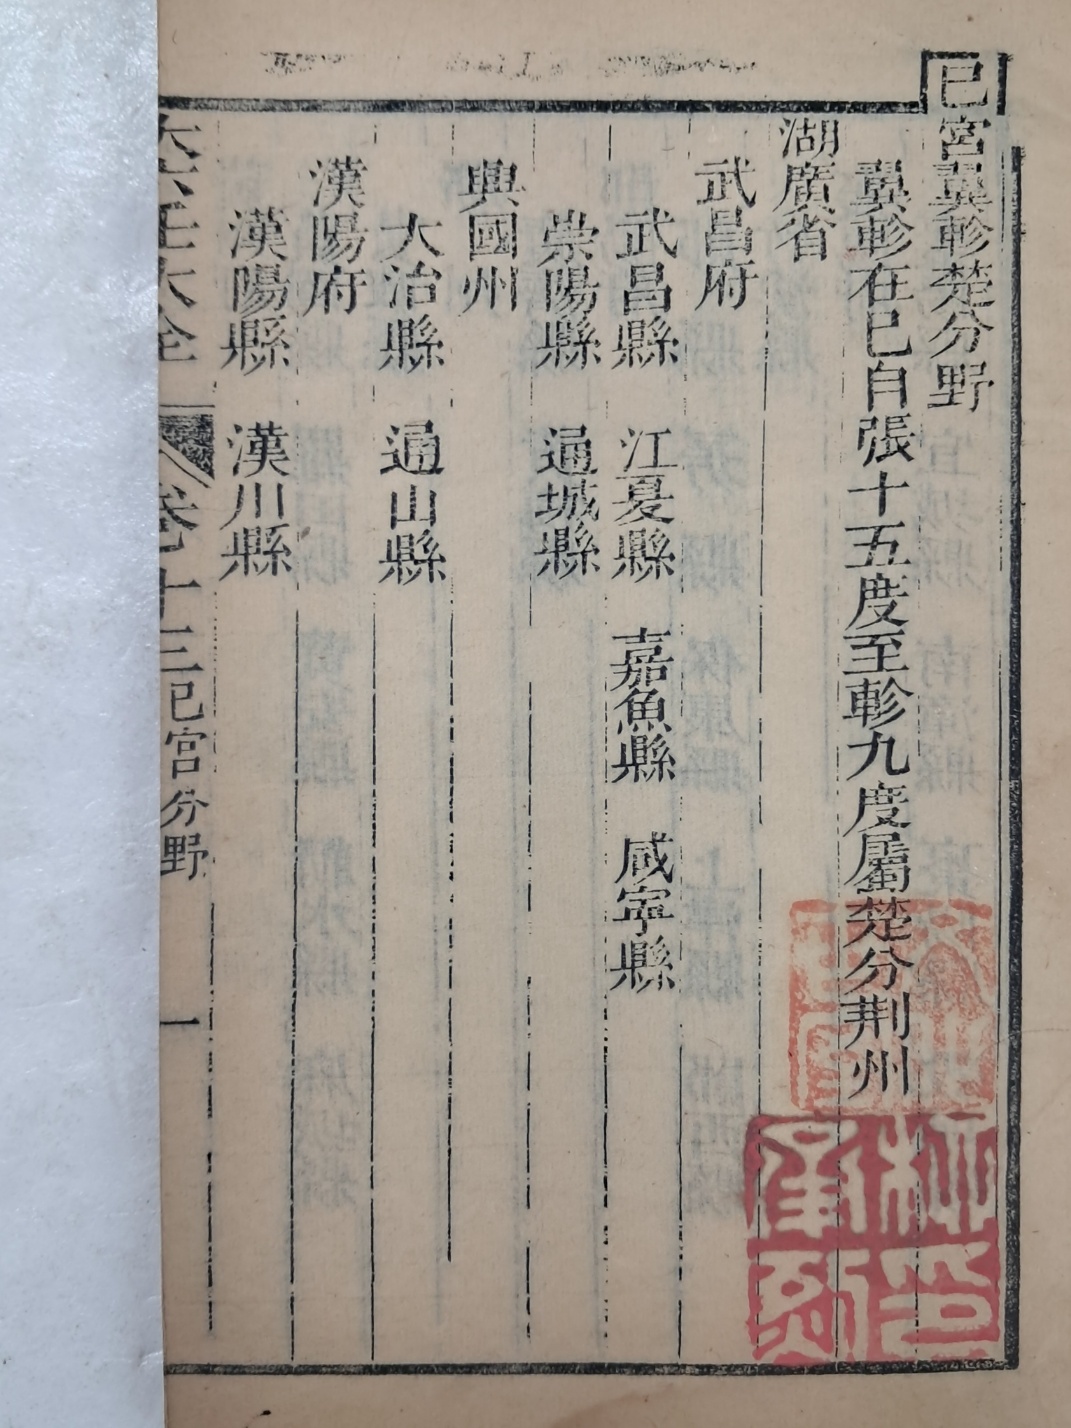 巳宮翼軫楚分野
翼軫在巳自張十五度至軫九度屬楚分荆州
湖廣省
武昌府
武昌縣　江夏縣　嘉魚縣　咸寧縣
崇陽縣　通城縣
興國州
大冶縣　通山縣
漢陽府
漢陽縣　漢川縣
六壬大全　卷十三巳宮分野　一